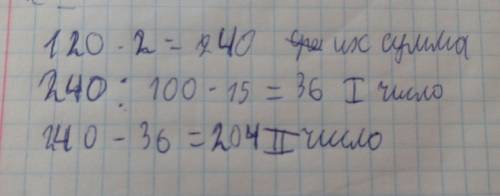 120 · 2 = 240 их сумма
240 : 100 · 15 = 36 I число
240 - 36 = 204 II число